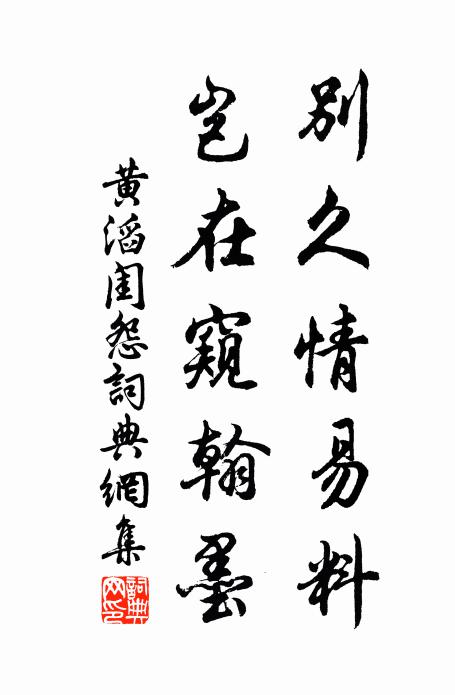 別久情易料
豈在窺翰墨
黃滔閨怨詞典網集
詞典网印